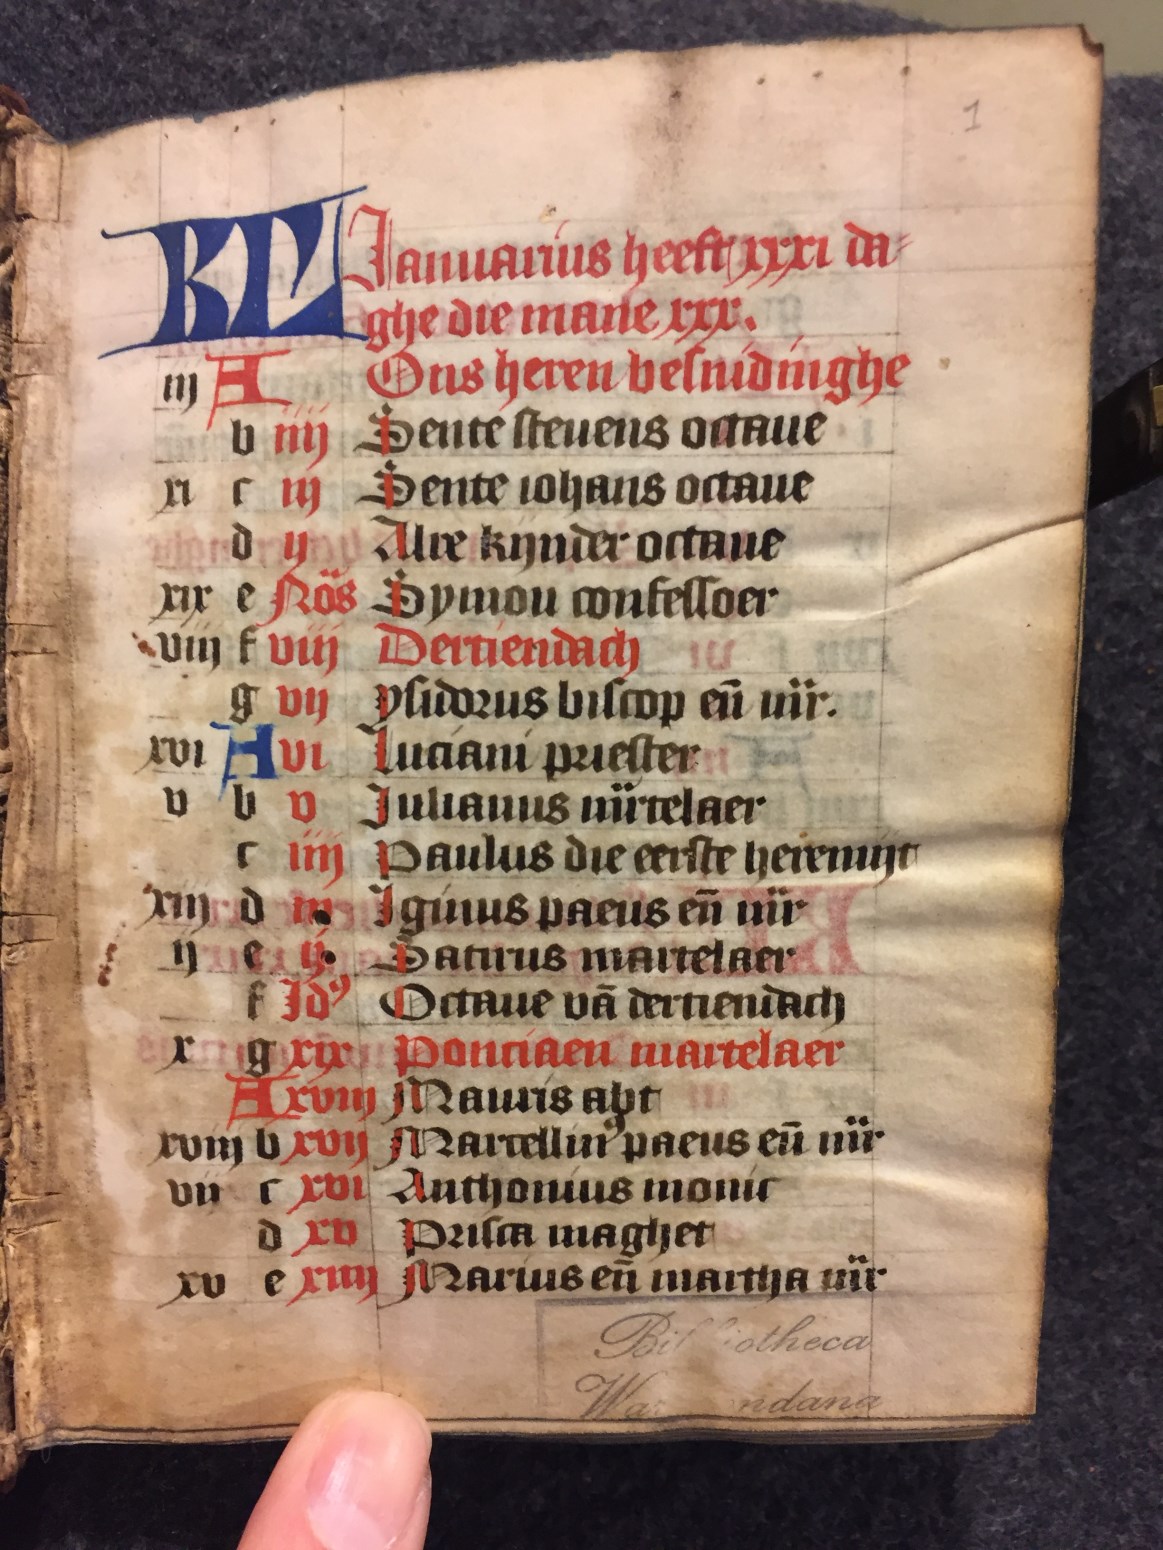 1
KL Januarius heeft xxxi da-
ghe die mane xxx.
iij A Ons heren besnidinghe
b iiij Sente steuens octaue
xi c iij Sente iohans octaue
d ij Alre kijnder octaue
xix e Nōs Symon confessoer
viij f viij Dertiendach
g vij ysidorus biscop eñ m̄r.
xvi A vi Luciani priester
v b v Julianus m̄rtelaer
c iiij Paulus die eerste heremijt
xiij d iij Iginus paeus eñ m̄r
ij e ij Satirus martelaer
f Idꝰ Octaue vā dertiendach
x g xix Ponciaen martelaer
A xviij Mauris abt
xviij b xvij Marcellinꝰ paeus eñ m̄r
vii c xvi Anthonius monic
d xv Prisca maghet
xv e xiiij Marius eñ martha m̄r
Bibliotheca